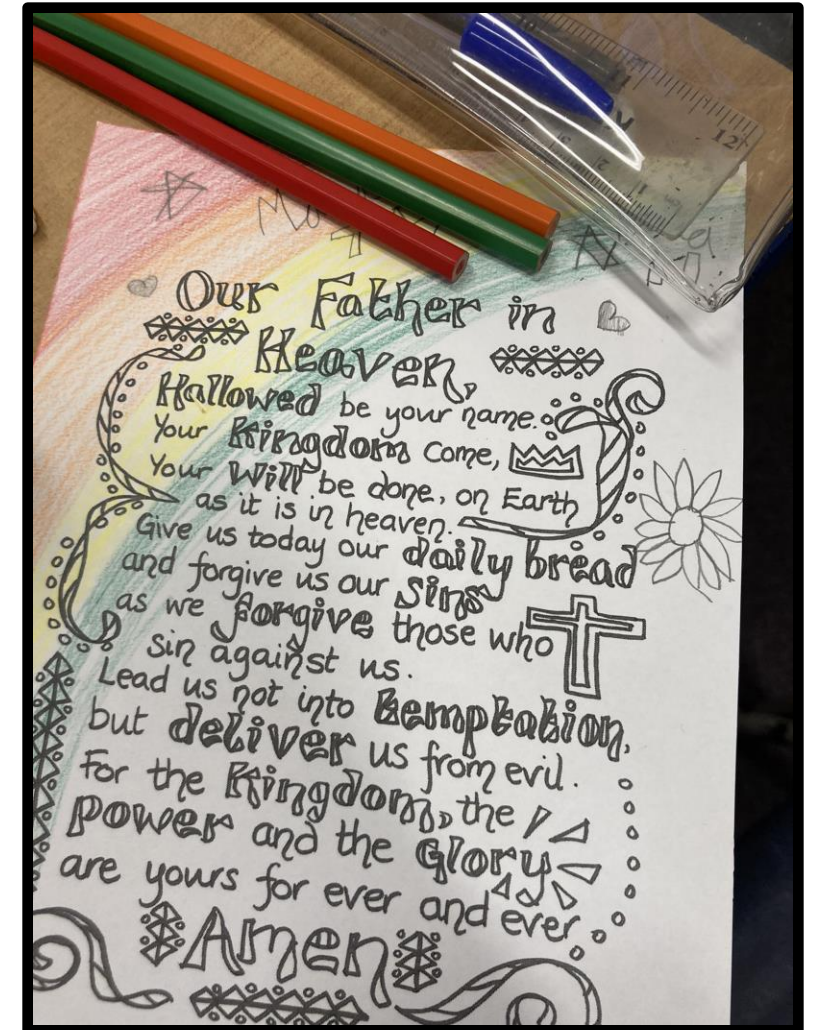 Our Father in
Heaven,
Hallowed be your name.
Your Kingdom come,
Your Will be done, on Earth
as it is in heaven.
Give us today our daily bread
and forgive us our sins
as we forgive those who
sin against us.
Lead us not into temptation,
but deliver us from evil.
For the Kingdom, the
power and the Glory
are yours for ever and ever.
Amen